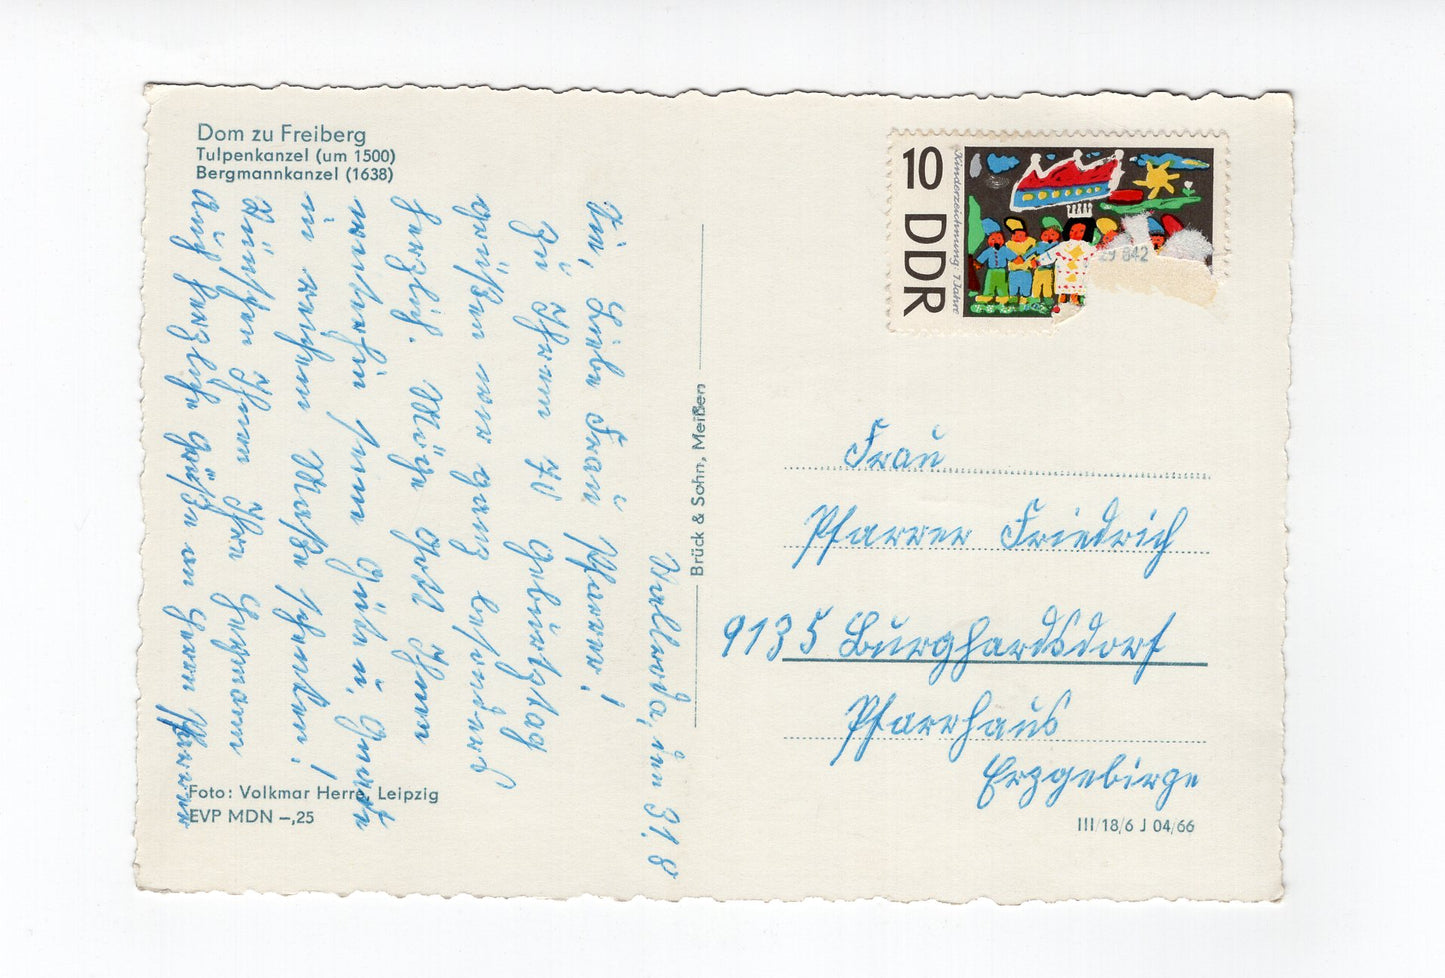 Dom zu Freiberg
Tulpenkanzel (um 1500)
Bergmannkanzel (1638)
Wallroda, den 31.8
Liebe Frau Pfarrer!
Zu Ihrem 70 Geburtstag
grüßen wir ganz besonders
herzlich. Möge Gott Ihnen
weiterhin seine Güte u. Gnade
in reichem Maße schenken!
Wünschen Ihnen Ihre
Auch herzliche Grüße an Herrn Pfarrer
Foto: Volkmar Herre, Leipzig
EVP MDN –,25
Brück & Sohn, Meißen
10 DDR
Kinderzeichnung: 7 Jahre
29 842
Frau
Pfarrer Friedrich
9135 Burghardsdorf
Pfarrhaus
Erzgebirge
III/18/6 J 04/66